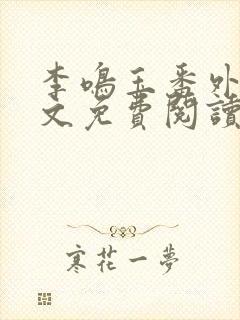 李鳴玉番外
文免費閱讀
寒花一夢